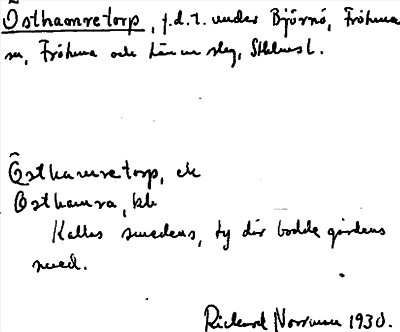 Östhamretorp, f.d.t. under Björnö, Frötuna
sn, Frötuna och Länna slg, Sthlms l.
Östhamretorp, ek
Östhamra, kb
Kallas smedens, ty där bodde gårdens
smed.
Rickard Norrman 1930.